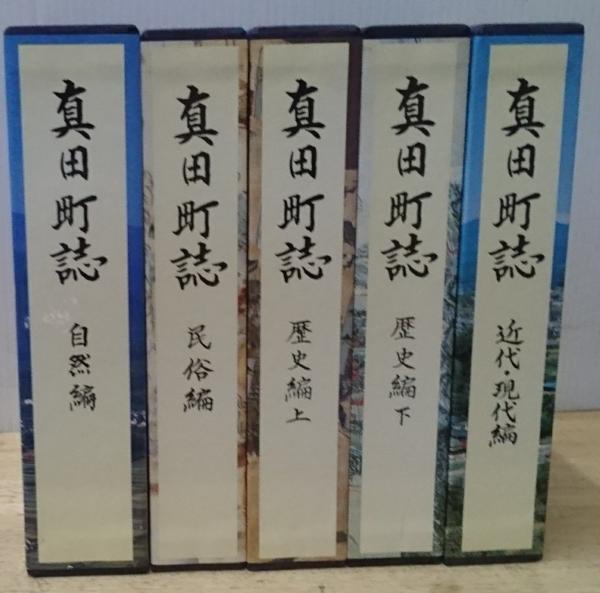 真田町誌
自然編
真田町誌
民俗編
真田町誌
歴史編上
真田町誌
歴史編下
真田町誌
近代・現代編